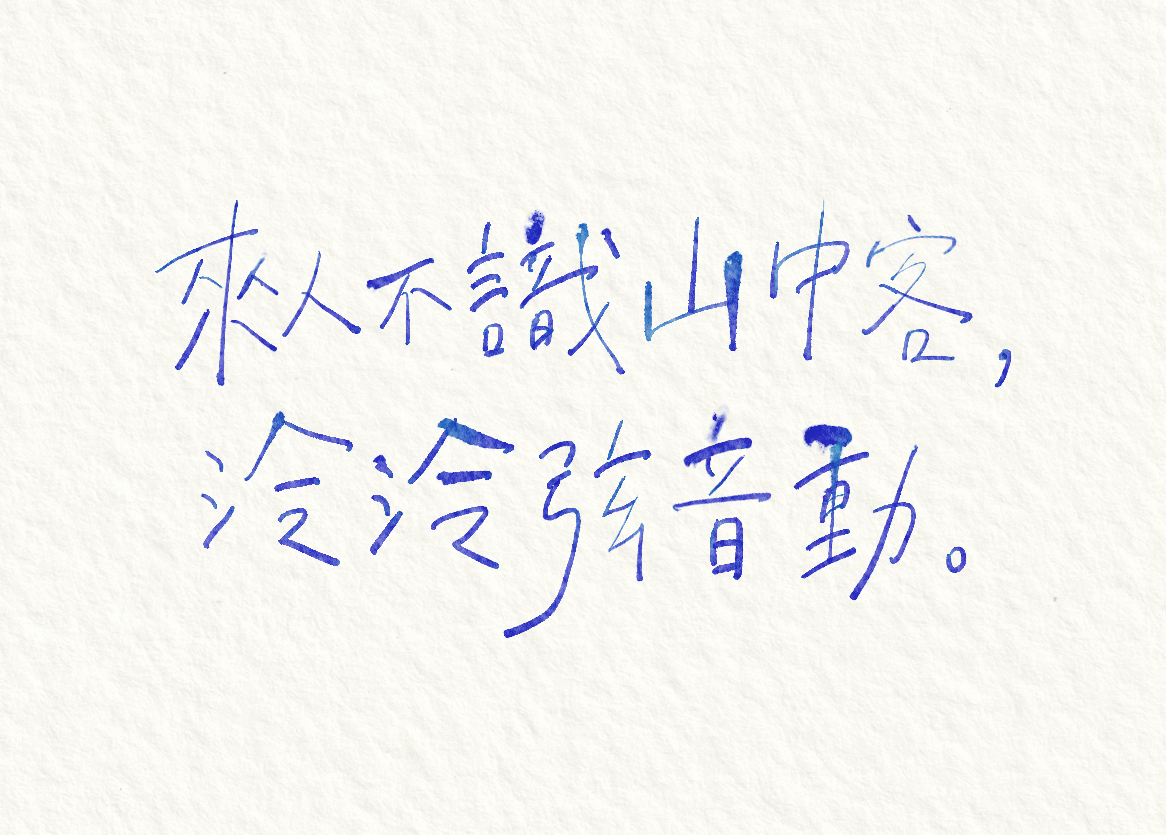 來人不識山中客，
冷冷弦音動。